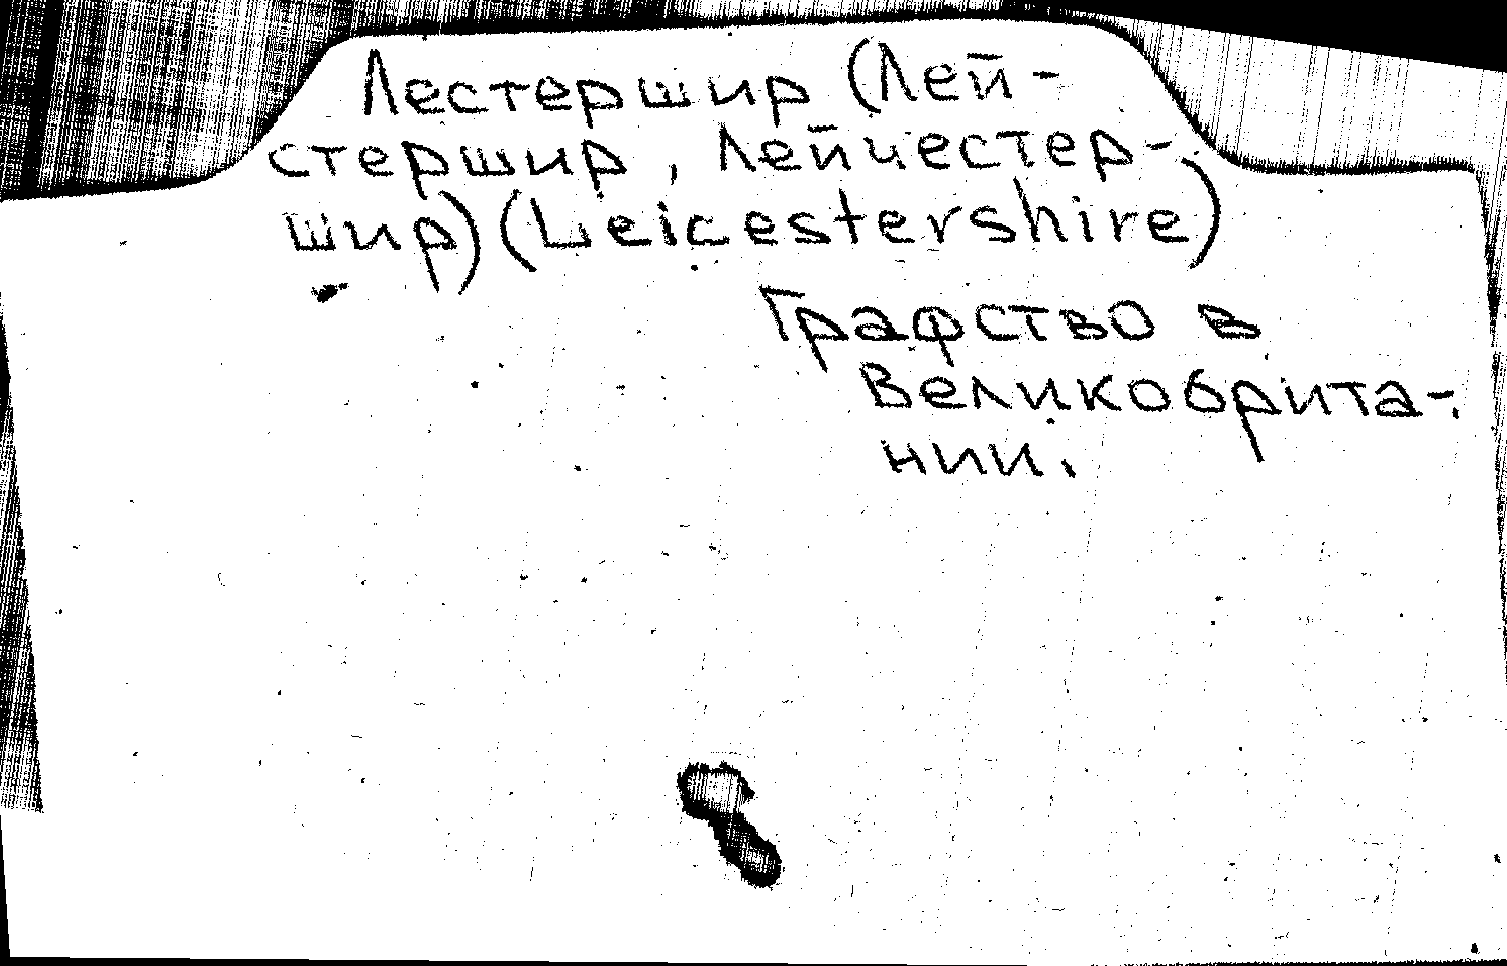 Лестершир (Лей-
стершир, Лейчестер-
шир) (Leicestershire)
Графство в
Великобрита-
нии.